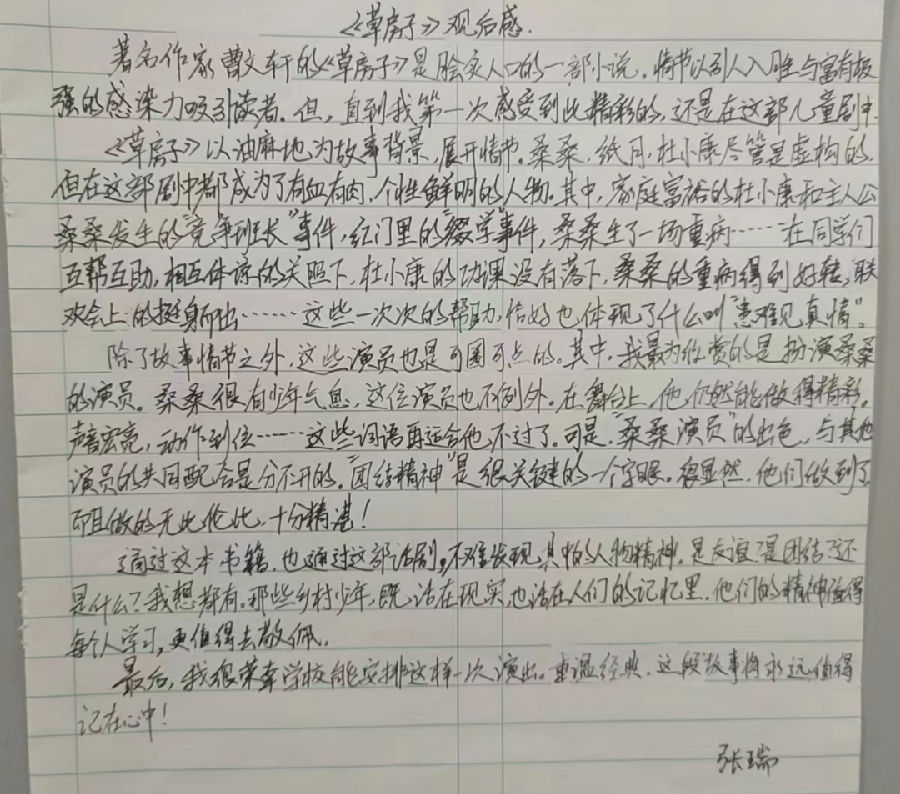 《草房子》观后感.
著名作家曹文轩的《草房子》是脍炙人口的一部小说。情节以引人入胜与富有极
强的感染力吸引读者。但，直到我第一次感受到此精彩的，还是在这部儿童剧中.
《草房子》以油麻地为故事背景，展开情节。桑桑.纸月.杜小康尽管是虚构的,
但在这部剧中都成为了有血有肉，个性鲜明的人物。其中，家庭富裕的杜小康和主人公
桑桑发生的"竞争班长"事件，红门里的"辍学"事件，桑桑生了一场重病……在同学们
互帮互助，相互体谅的关照下，杜小康的功课没有落下，桑桑的重病得到好转，联
欢会上的挺身而出……这些一次次的帮助，恰好也体现了什么叫"患难见真情"。
除了故事情节之外，这些演员也是可圈可点的。其中，我最为欣赏的是扮演桑桑
的演员。桑桑很有少年气息，这位演员也不例外。在舞台上，他仍然能做得精彩。
声音宏亮，动作到位……这些词语再适合他不过了。可是，"桑桑演员"的出色，与其他
演员的共同配合是分不开的。"团结精神"是很关键的一个字眼。很显然，他们做到了
而且做的无此伦比，十分精湛！
通过这本书籍，也通过这部话剧，不难发现，其中的人物精神，是友谊？是团结？还
是什么？我想都有。那些乡村少年，既活在现实，也活在人们的记忆里，他们的精神值得
每个人学习，更值得去敬佩。
最后，我很荣幸学校能安排这样一次演出。重温经典，这段故事将永远值得
记在心中！
张瑞